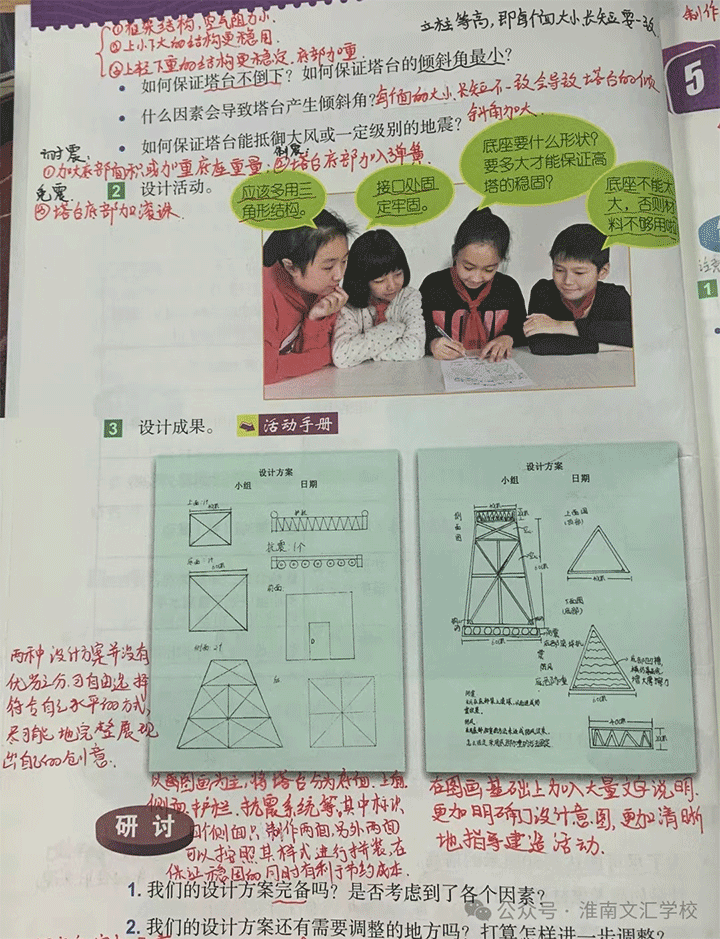 ①框架结构,空气阻力小.
②上小下大的结构更稳固.
③上轻下重的结构更稳定,底部加重.
立柱等高,即每个面大小、长短要一致.
制作
5
• 如何保证塔台不倒下?如何保证塔台的倾斜角最小?
• 什么因素会导致塔台产生倾斜角?
每个面的大小、长短不一致会导致塔台的倾
斜角加大.
• 如何保证塔台能抵御大风或一定级别的地震?
耐震:
①加大底部面积或加重底座重量;②塔台底部加入弹簧.
免震:
③塔台底部加滚珠.
2 设计活动。
应该多用三
角形结构。
接口处固
定牢固。
底座要什么形状?
要多大才能保证高
塔的稳固?
底座不能太
大,否则材
料不够用啦
1
3 设计成果。
活动手册
设计方案
小组 日期
抗震:1个
前面:
D
设计方案
小组 日期
侧面图
上面图
(顶部)
(底部)
两种设计方案并没有
优劣之分,可自由选择
符合自己水平的方式,
尽可能地完整展现
出自己的创意.
以画图画为主,将塔台分为底面、上面、
侧面、护栏、抗震系统等,其中标识
四个侧面只制作两面,另外两面
可以按照其样式进行拼装,在
保证稳固的同时有利于节约成本.
在图画基础上加入大量文字说明.
更加明确了设计意图,更加清晰
地指导建造活动.
研讨
1. 我们的设计方案完备吗?是否考虑到了各个因素?
2. 我们的设计方案还有需要调整的地方吗?打算怎样进一步调整?
公众号 · 淮南文汇学校